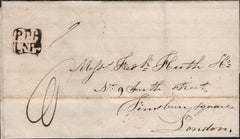 Messrs Fredk Huth & Co
No 9 South Street
Finsbury Square
London.